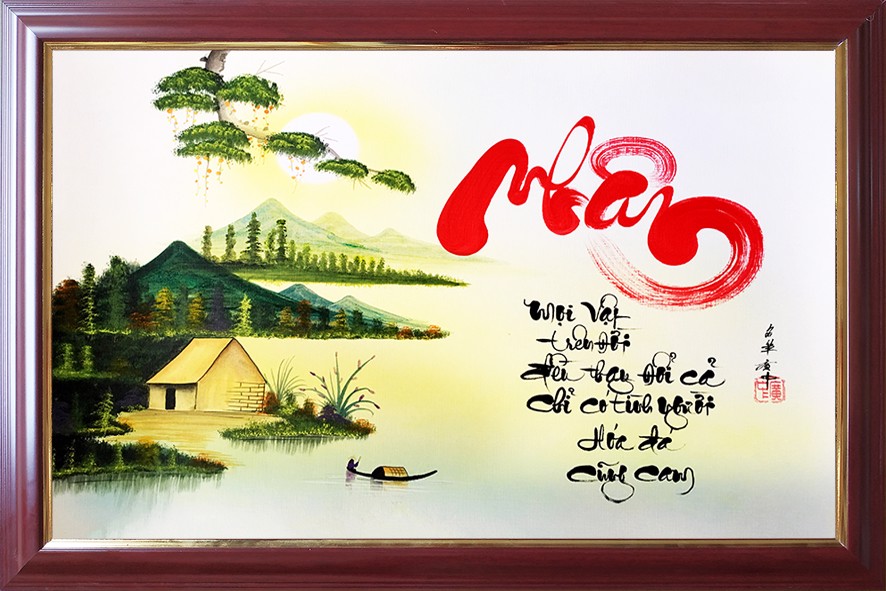 Nhân
Mọi Vật
trên đời
đều thay đổi cả
chỉ có tình người
Hóa đá
cũng cam